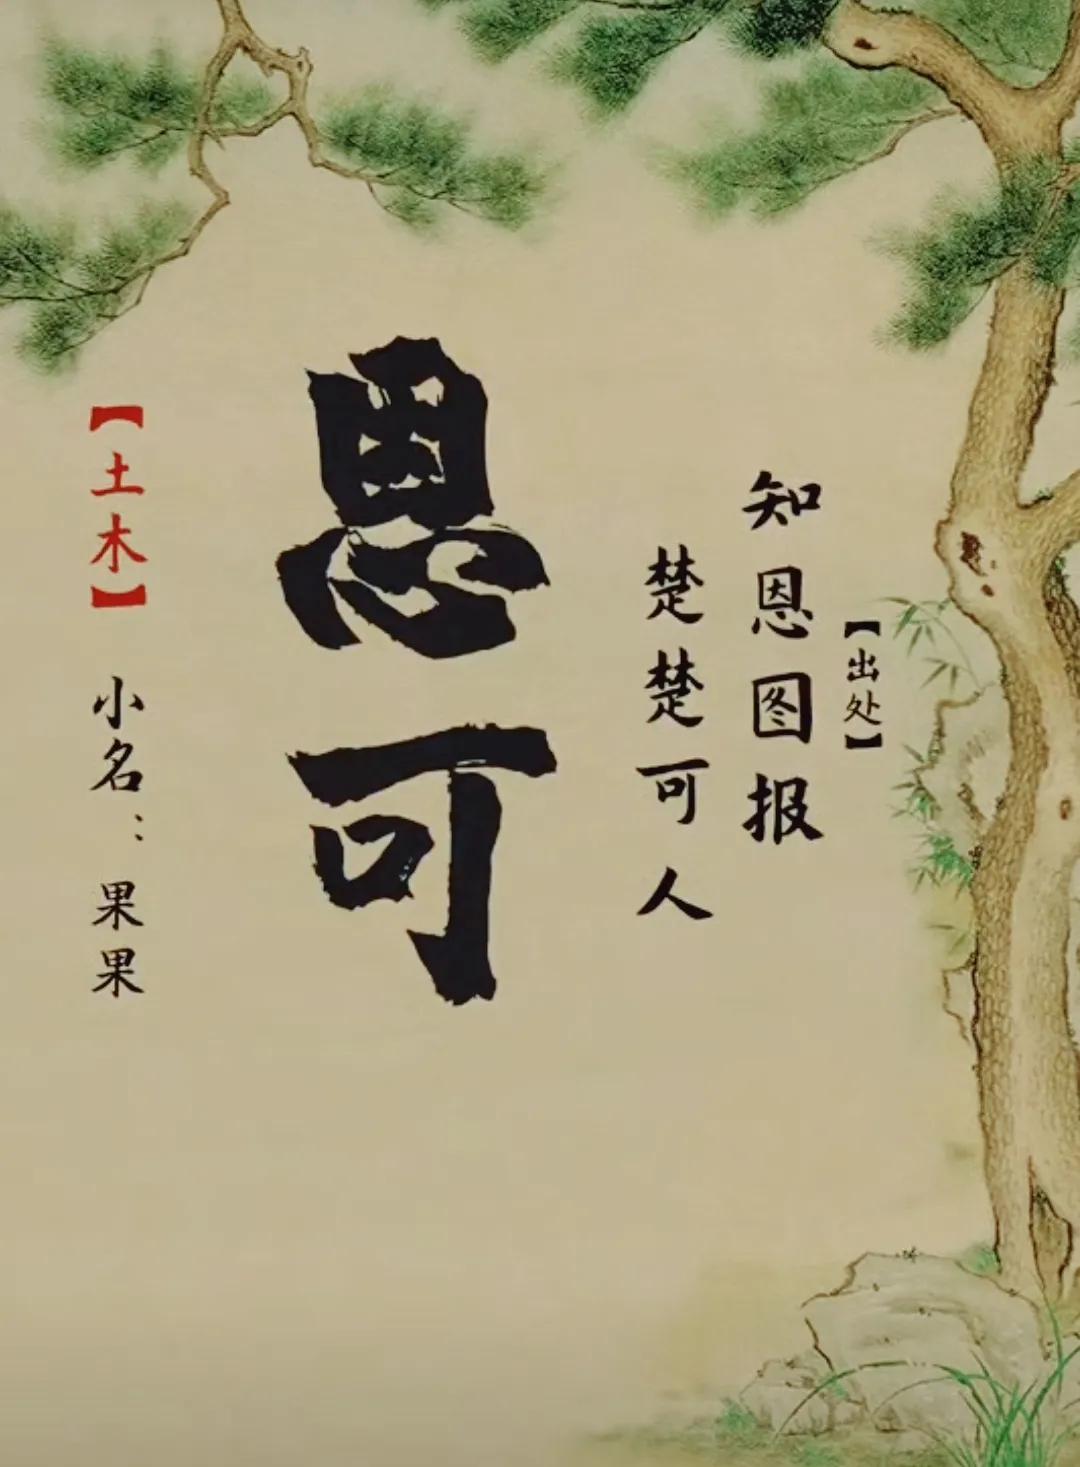 【出处】
知恩图报
楚楚可人
恩可
【土木】 小名：果果